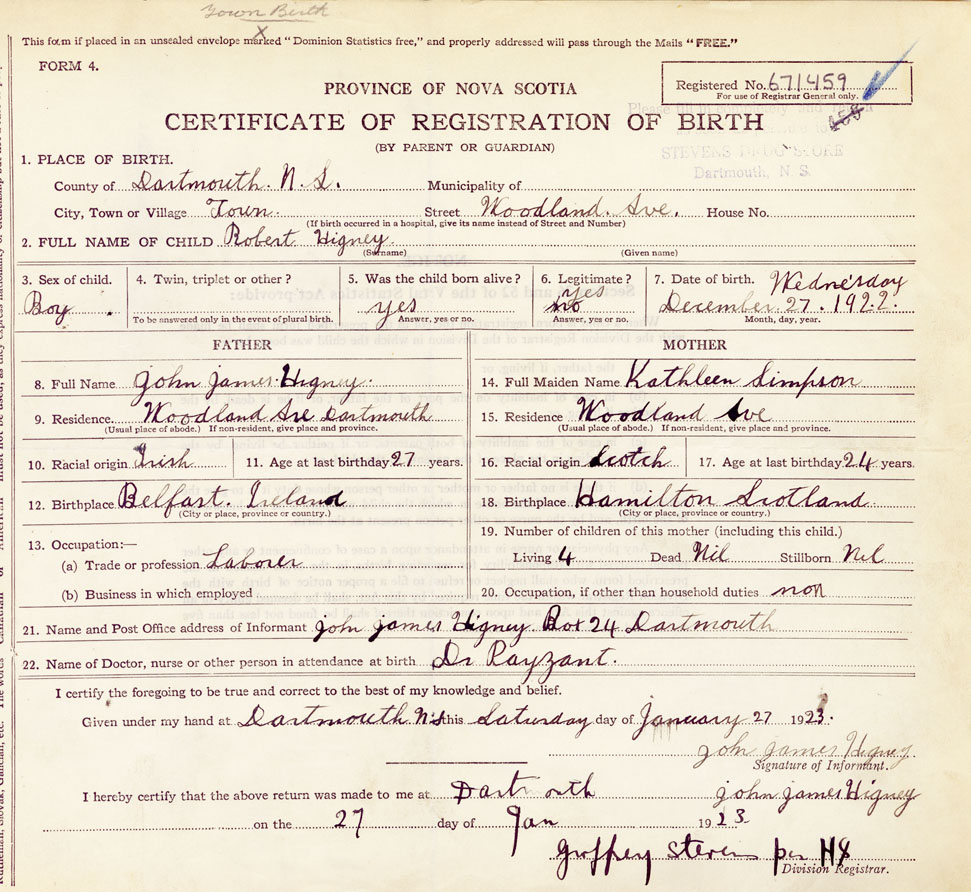 Town Birth
X
This form if placed in an unsealed envelope marked "Dominion Statistics free," and properly addressed will pass through the Mails "FREE."
FORM 4.
PROVINCE OF NOVA SCOTIA
Registered No. 671459
For use of Registrar General only.
CERTIFICATE OF REGISTRATION OF BIRTH
(BY PARENT OR GUARDIAN)
STEVENS DRUG STORE
Dartmouth, N. S.
1. PLACE OF BIRTH.
County of Dartmouth. N. S. Municipality of
City, Town or Village Town. Street Woodland. Ave. House No.
(If birth occurred in a hospital, give its name instead of Street and Number)
2. FULL NAME OF CHILD Robert Higney.
(Surname) (Given name)
3. Sex of child. 4. Twin, triplet or other? 5. Was the child born alive? 6. Legitimate? 7. Date of birth. Wednesday
Boy yes yes no December. 27. 1922.
To be answered only in the event of plural birth. Answer, yes or no. Answer, yes or no. Month, day, year.
FATHER MOTHER
8. Full Name John James. Higney. 14. Full Maiden Name Kathleen Simpson
9. Residence. Woodland Ave Dartmouth 15. Residence Woodland Ave
(Usual place of abode.) If non-resident, give place and province. (Usual place of abode.) If non-resident, give place and province.
10. Racial origin Irish 11. Age at last birthday 27 years. 16. Racial origin Scotch 17. Age at last birthday 24 years.
12. Birthplace Belfast. Ireland 18. Birthplace Hamilton Scotland
(City or place, province or country.) (City or place, province or country.)
13. Occupation:— 19. Number of children of this mother (including this child.)
(a) Trade or profession Laborer Living 4 Dead Nil Stillborn Nil
(b) Business in which employed 20. Occupation, if other than household duties non
21. Name and Post Office address of Informant john james Higney Box 24 Dartmouth
22. Name of Doctor, nurse or other person in attendance at birth Dr Payzant.
I certify the foregoing to be true and correct to the best of my knowledge and belief.
Given under my hand at Dartmouth N.S this Saturday day of January 27 1923.
john james Higney
Signature of Informant.
I hereby certify that the above return was made to me at Dartmouth john james Higney
on the 27 day of Jan 1923
Geoffrey Stevens per HS
Division Registrar.